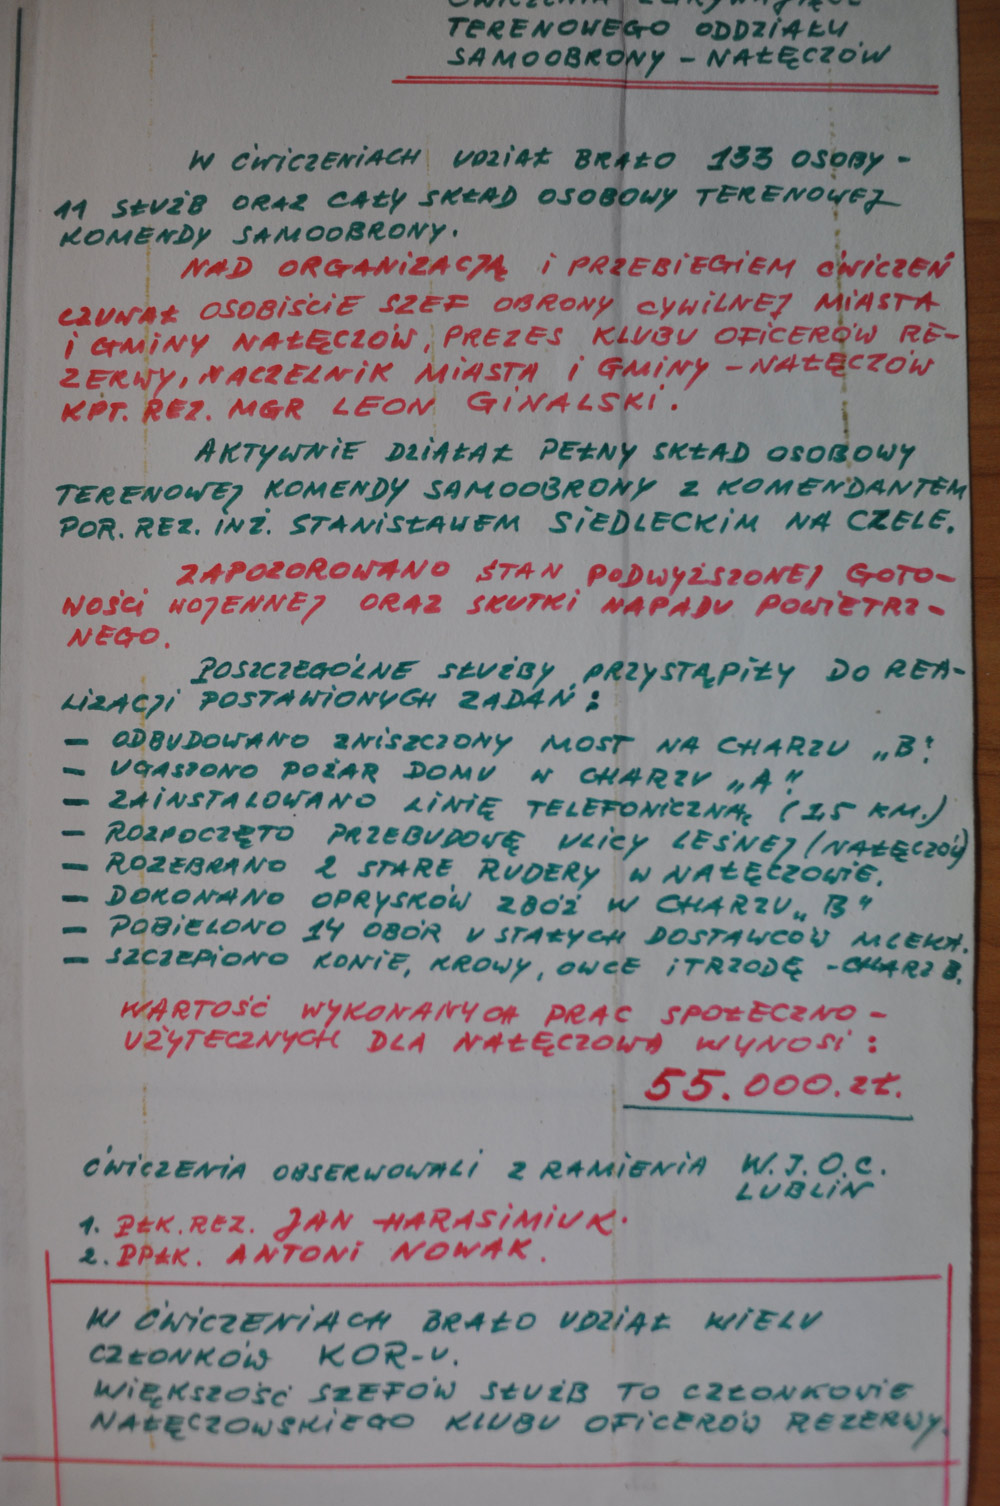 ĆWICZENIA ZGRYWAJĄCE
TERENOWEGO ODDZIAŁU
SAMOOBRONY – NAŁĘCZÓW
W ĆWICZENIACH UDZIAŁ BRAŁO 133 OSOBY -
11 SŁUŻB ORAZ CAŁY SKŁAD OSOBOWY TERENOWEJ
KOMENDY SAMOOBRONY.
NAD ORGANIZACJĄ i PRZEBIEGIEM ĆWICZEŃ
CZUWAŁ OSOBIŚCIE SZEF OBRONY CYWILNEJ MIASTA
i GMINY NAŁĘCZÓW, PREZES KLUBU OFICERÓW RE-
ZERWY, NACZELNIK MIASTA i GMINY – NAŁĘCZÓW
KPT. REZ. MGR LEON GINALSKI.
AKTYWNIE DZIAŁAŁ PEŁNY SKŁAD OSOBOWY
TERENOWEJ KOMENDY SAMOOBRONY Z KOMENDANTEM
POR. REZ. INŻ. STANISŁAWEM SIEDLECKIM NA CZELE.
ZAPOZOROWANO STAN PODWYŻSZONEJ GOTO-
WOŚCI WOJENNEJ ORAZ SKUTKI NAPADU POWIETRZ-
NEGO.
POSZCZEGÓLNE SŁUŻBY PRZYSTĄPIŁY DO REA-
LIZACJI POSTAWIONYCH ZADAŃ:
– ODBUDOWANO ZNISZCZONY MOST NA CHARZU „B".
– UGASZONO POŻAR DOMU W CHARZU „A".
– ZAINSTALOWANO LINIĘ TELEFONICZNĄ (1,5 KM.)
– ROZPOCZĘTO PRZEBUDOWĘ ULICY LEŚNEJ (NAŁĘCZÓW)
– ROZEBRANO 2 STARE RUDERY W NAŁĘCZOWIE.
– DOKONANO OPRYSKÓW ZBÓŻ W CHARZU „B"
– POBIELONO 14 OBÓR U STAŁYCH DOSTAWCÓW MLEKA.
– SZCZEPIONO KONIE, KROWY, OWCE i TRZODĘ – CHARZ B.
WARTOŚĆ WYKONANYCH PRAC SPOŁECZNO –
UŻYTECZNYCH DLA NAŁĘCZOWA WYNOSI:
55.000.zł.
ĆWICZENIA OBSERWOWALI Z RAMIENIA W.I.O.C.
LUBLIN
1. PŁK. REZ. JAN HARASIMIUK.
2. PPŁK. ANTONI NOWAK.
W ĆWICZENIACH BRAŁO UDZIAŁ WIELU
CZŁONKÓW KOR-U.
WIĘKSZOŚĆ SZEFÓW SŁUŻB TO CZŁONKOWIE
NAŁĘCZOWSKIEGO KLUBU OFICERÓW REZERWY.